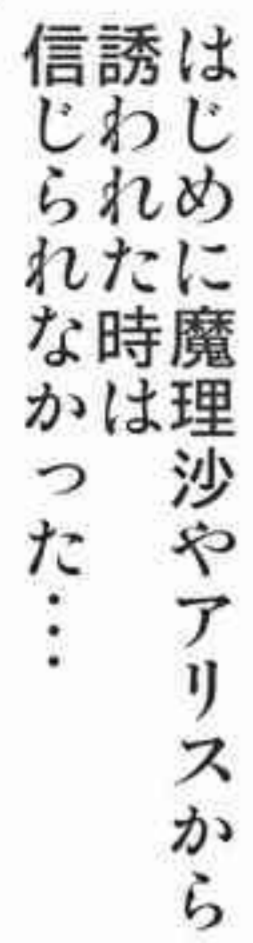 はじめに魔理沙やアリスから
誘われた時は
信じられなかった…